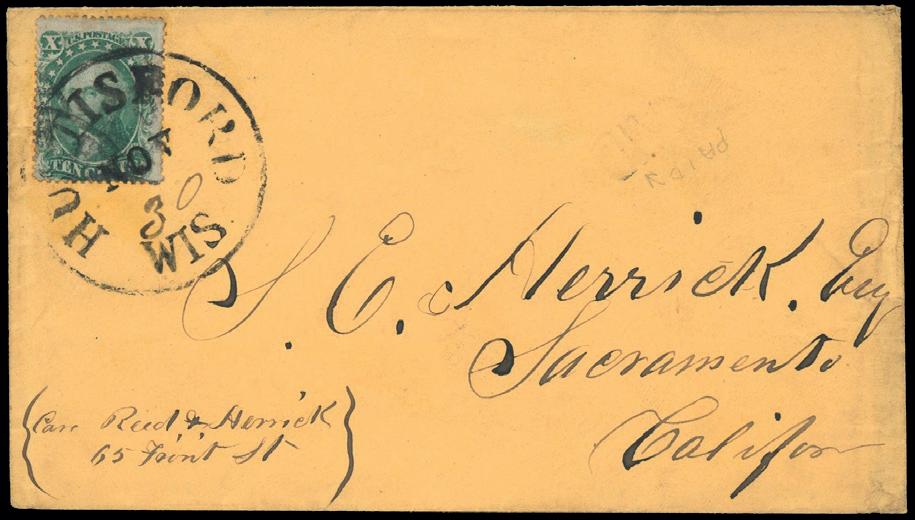 X U.S. POSTAGE X
TEN CENTS
HUTISFORD
NOV
30
WIS
PAID
S. E. Herrick. Esq
Sacramento
Califor
(Care Reed & Herrick
65 Front St)